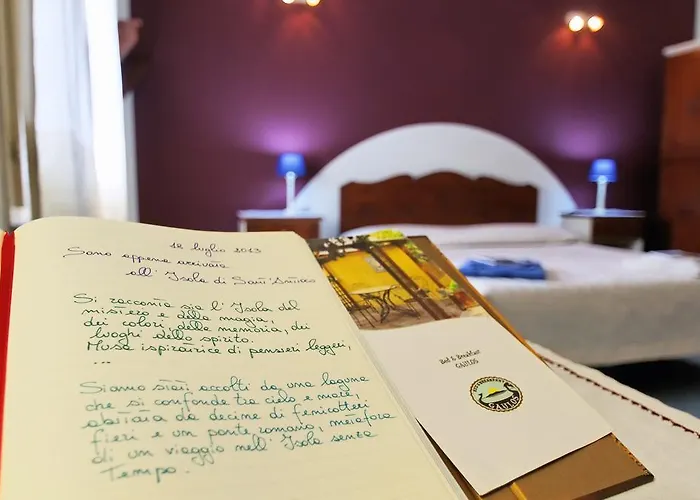 12 luglio 2013
Sono appena arrivata
all' Isola di Sant'Antioco
Si racconta sia l' Isola del
mistero e della magia,
dei colori, della memoria, dei
luoghi dello spirito.
Musa ispiratrice di pensieri leggeri,
...
Siamo stati accolti da una laguna
che si confonde tra cielo e mare,
abitata da decine di fenicotteri
fieri e un ponte romano, metafora
di un viaggio nell' Isola senza
Tempo.
Bed & Breakfast
GAULOS
BED & BREAKFAST
GAULOS